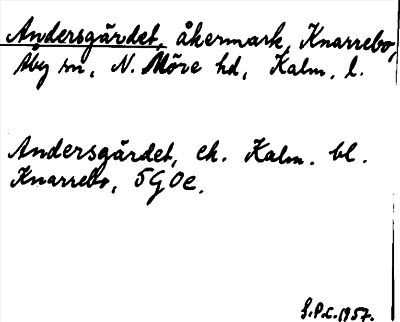 Andersgärdet, åkermark, Knarrebo,
Åby sn, N. Möre hd, Kalm. l.
Andersgärdet, ek. Kalm. bl.
Knarrebo, 5G0e.
S.P.L. 1957.